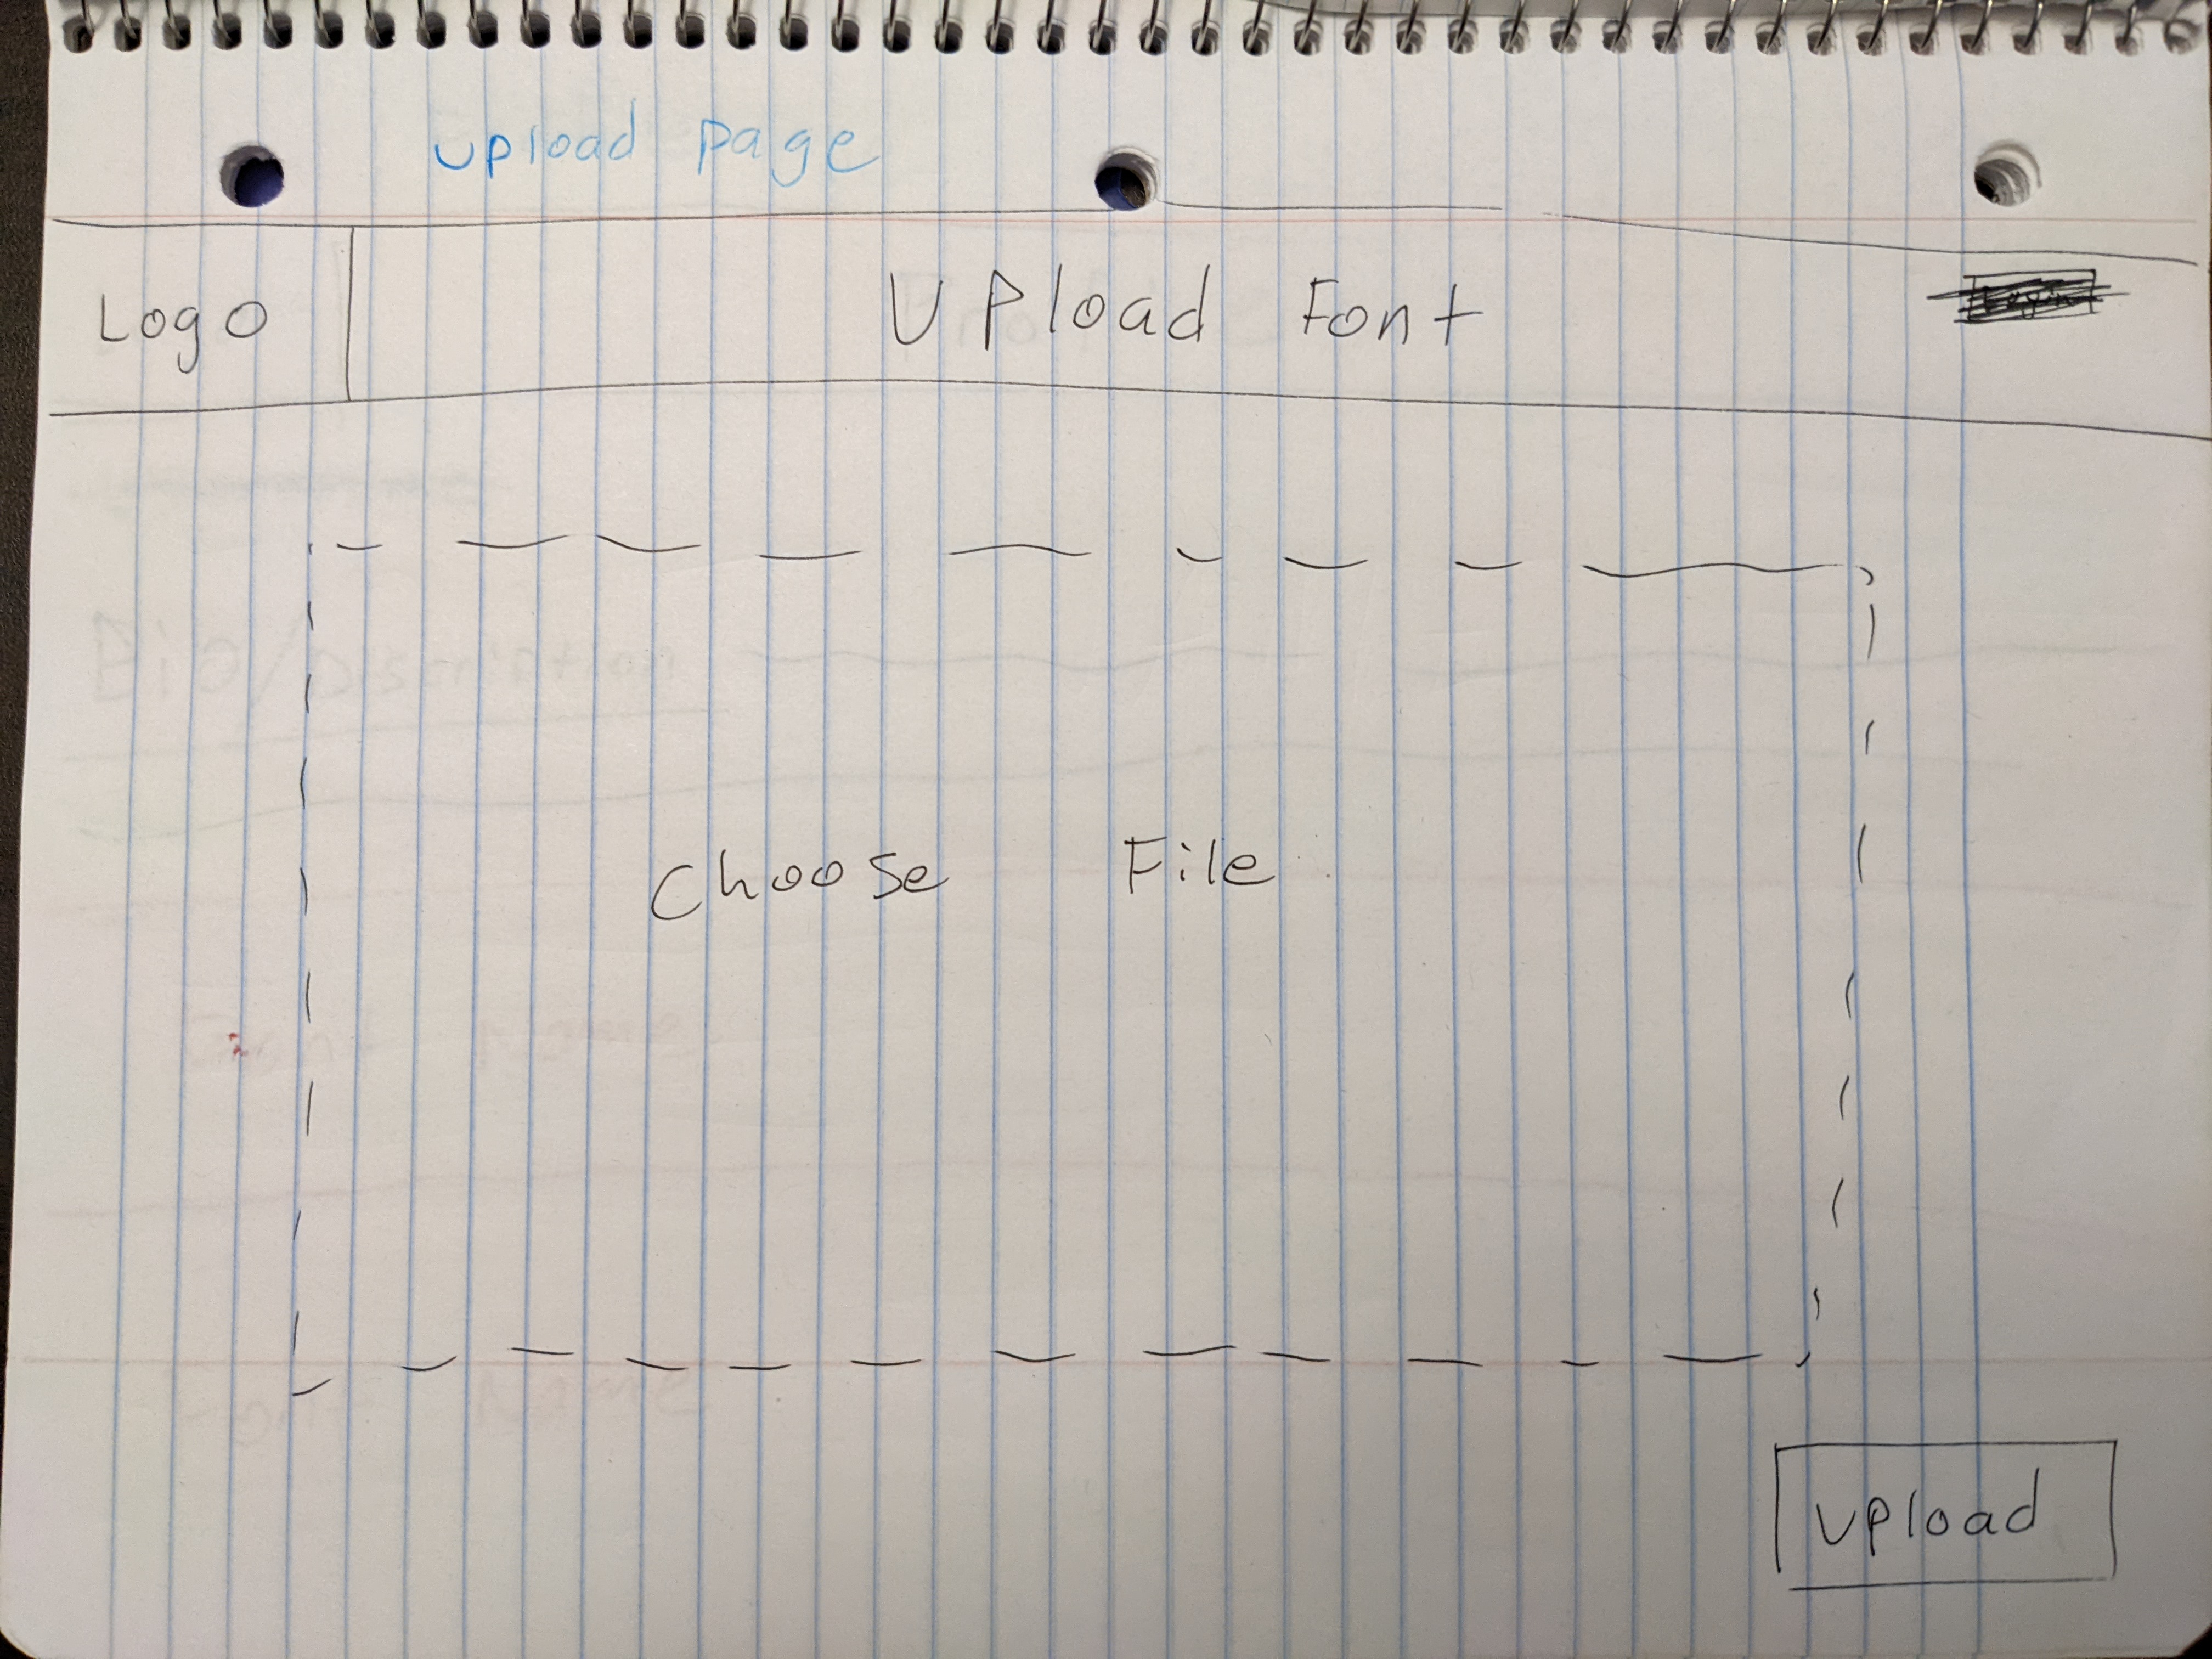 upload page
Logo
Upload Font
Choose File
upload